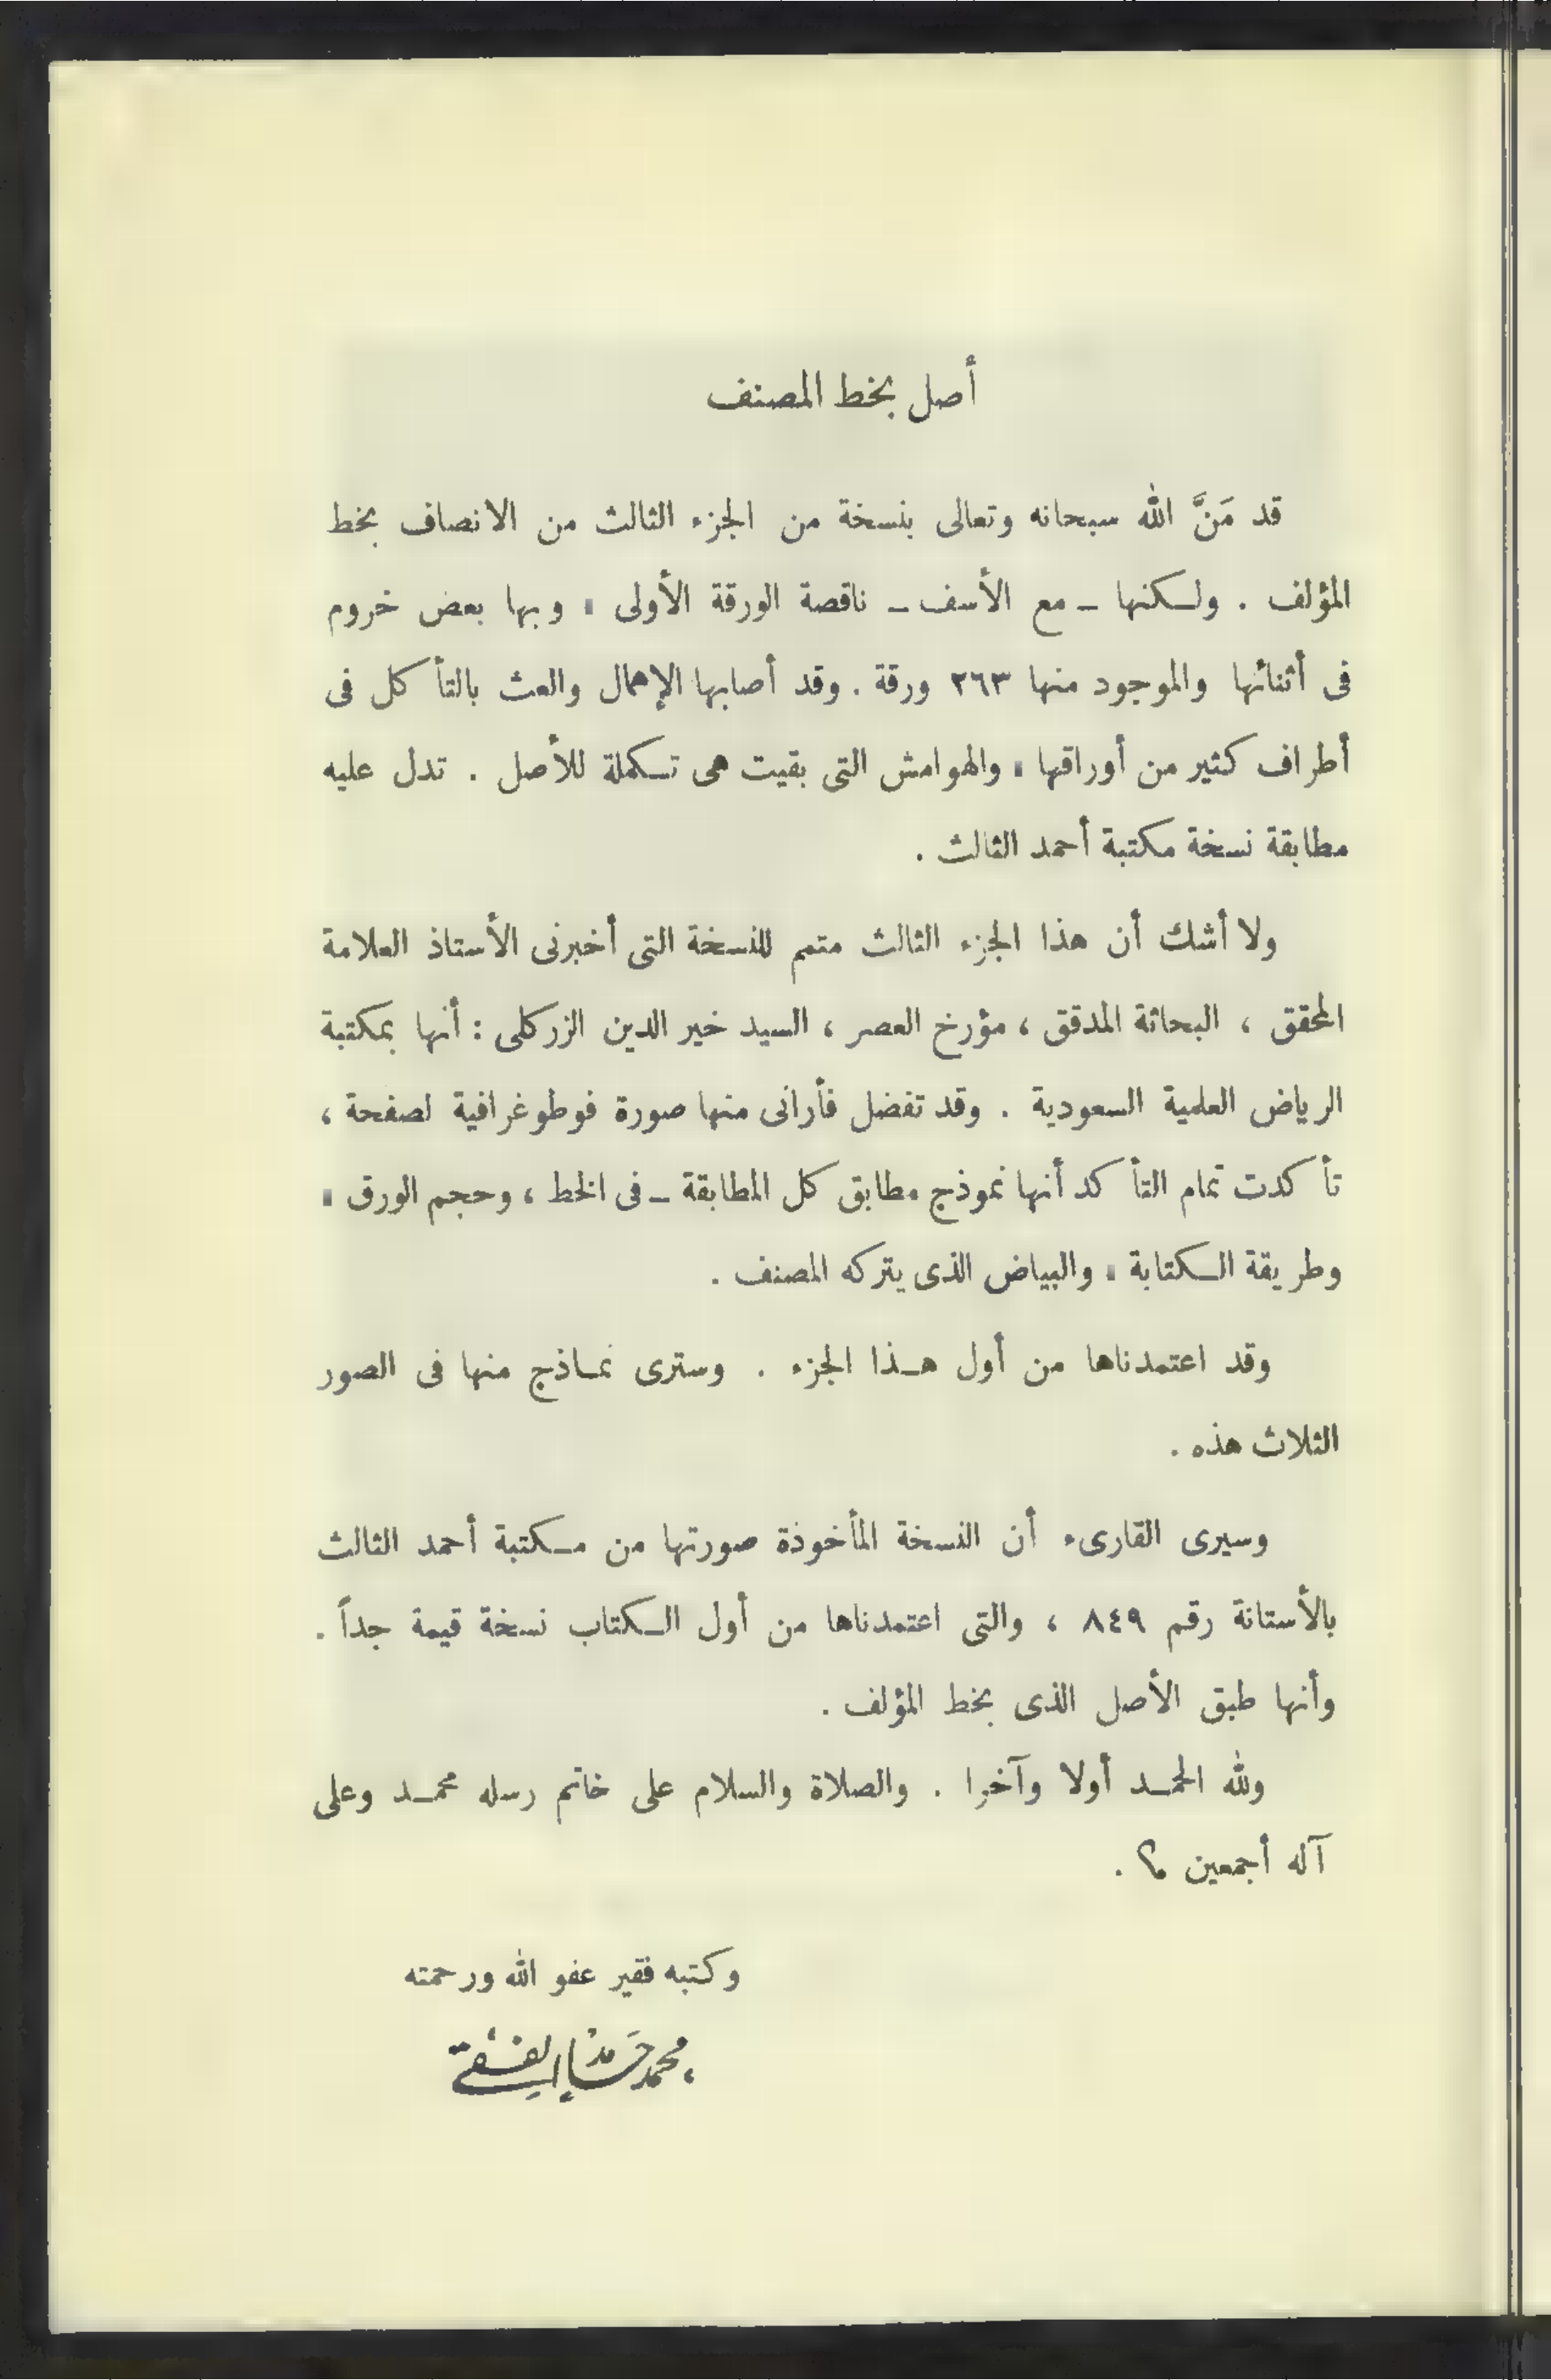 أصل بخط المصنف
قد مَنَّ الله سبحانه وتعالى بنسخة من الجزء الثالث من الانصاف بخط
المؤلف . ولكنها ــ مع الأسف ــ ناقصة الورقة الأولى ، وبها بعض خروم
فى أثنائها والموجود منها ٢٦٣ ورقة . وقد أصابها الإهمال والعث بالتأكل فى
أطراف كثير من أوراقها ، والهوامش التى بقيت هى تكملة للأصل . تدل عليه
مطابقة نسخة مكتبة أحمد الثالث .
ولا أشك أن هذا الجزء الثالث متمم للنسخة التى أخبرنى الأستاذ العلامة
المحقق ، البحاثة المدقق ، مؤرخ العصر ، السيد خير الدين الزركلى : أنها بمكتبة
الرياض العلمية السعودية . وقد تفضل فأرانى منها صورة فوطوغرافية لصفحة ،
تأكدت تمام التأكد أنها نموذج مطابق كل المطابقة ــ فى الخط ، وحجم الورق ،
وطريقة الكتابة ، والبياض الذى يتركه المصنف .
وقد اعتمدناها من أول هذا الجزء . وسترى نماذج منها فى الصور
الثلاث هذه .
وسيرى القارىء أن النسخة المأخوذة صورتها من مكتبة أحمد الثالث
بالأستانة رقم ٨٤٩ ، والتى اعتمدناها من أول الكتاب نسخة قيمة جداً .
وأنها طبق الأصل الذى بخط المؤلف .
ولله الحمد أولا وآخرا . والصلاة والسلام على خاتم رسله محمد وعلى
آله أجمعين .
وكتبه فقير عفو الله ورحمته
محمد حامد الفقي